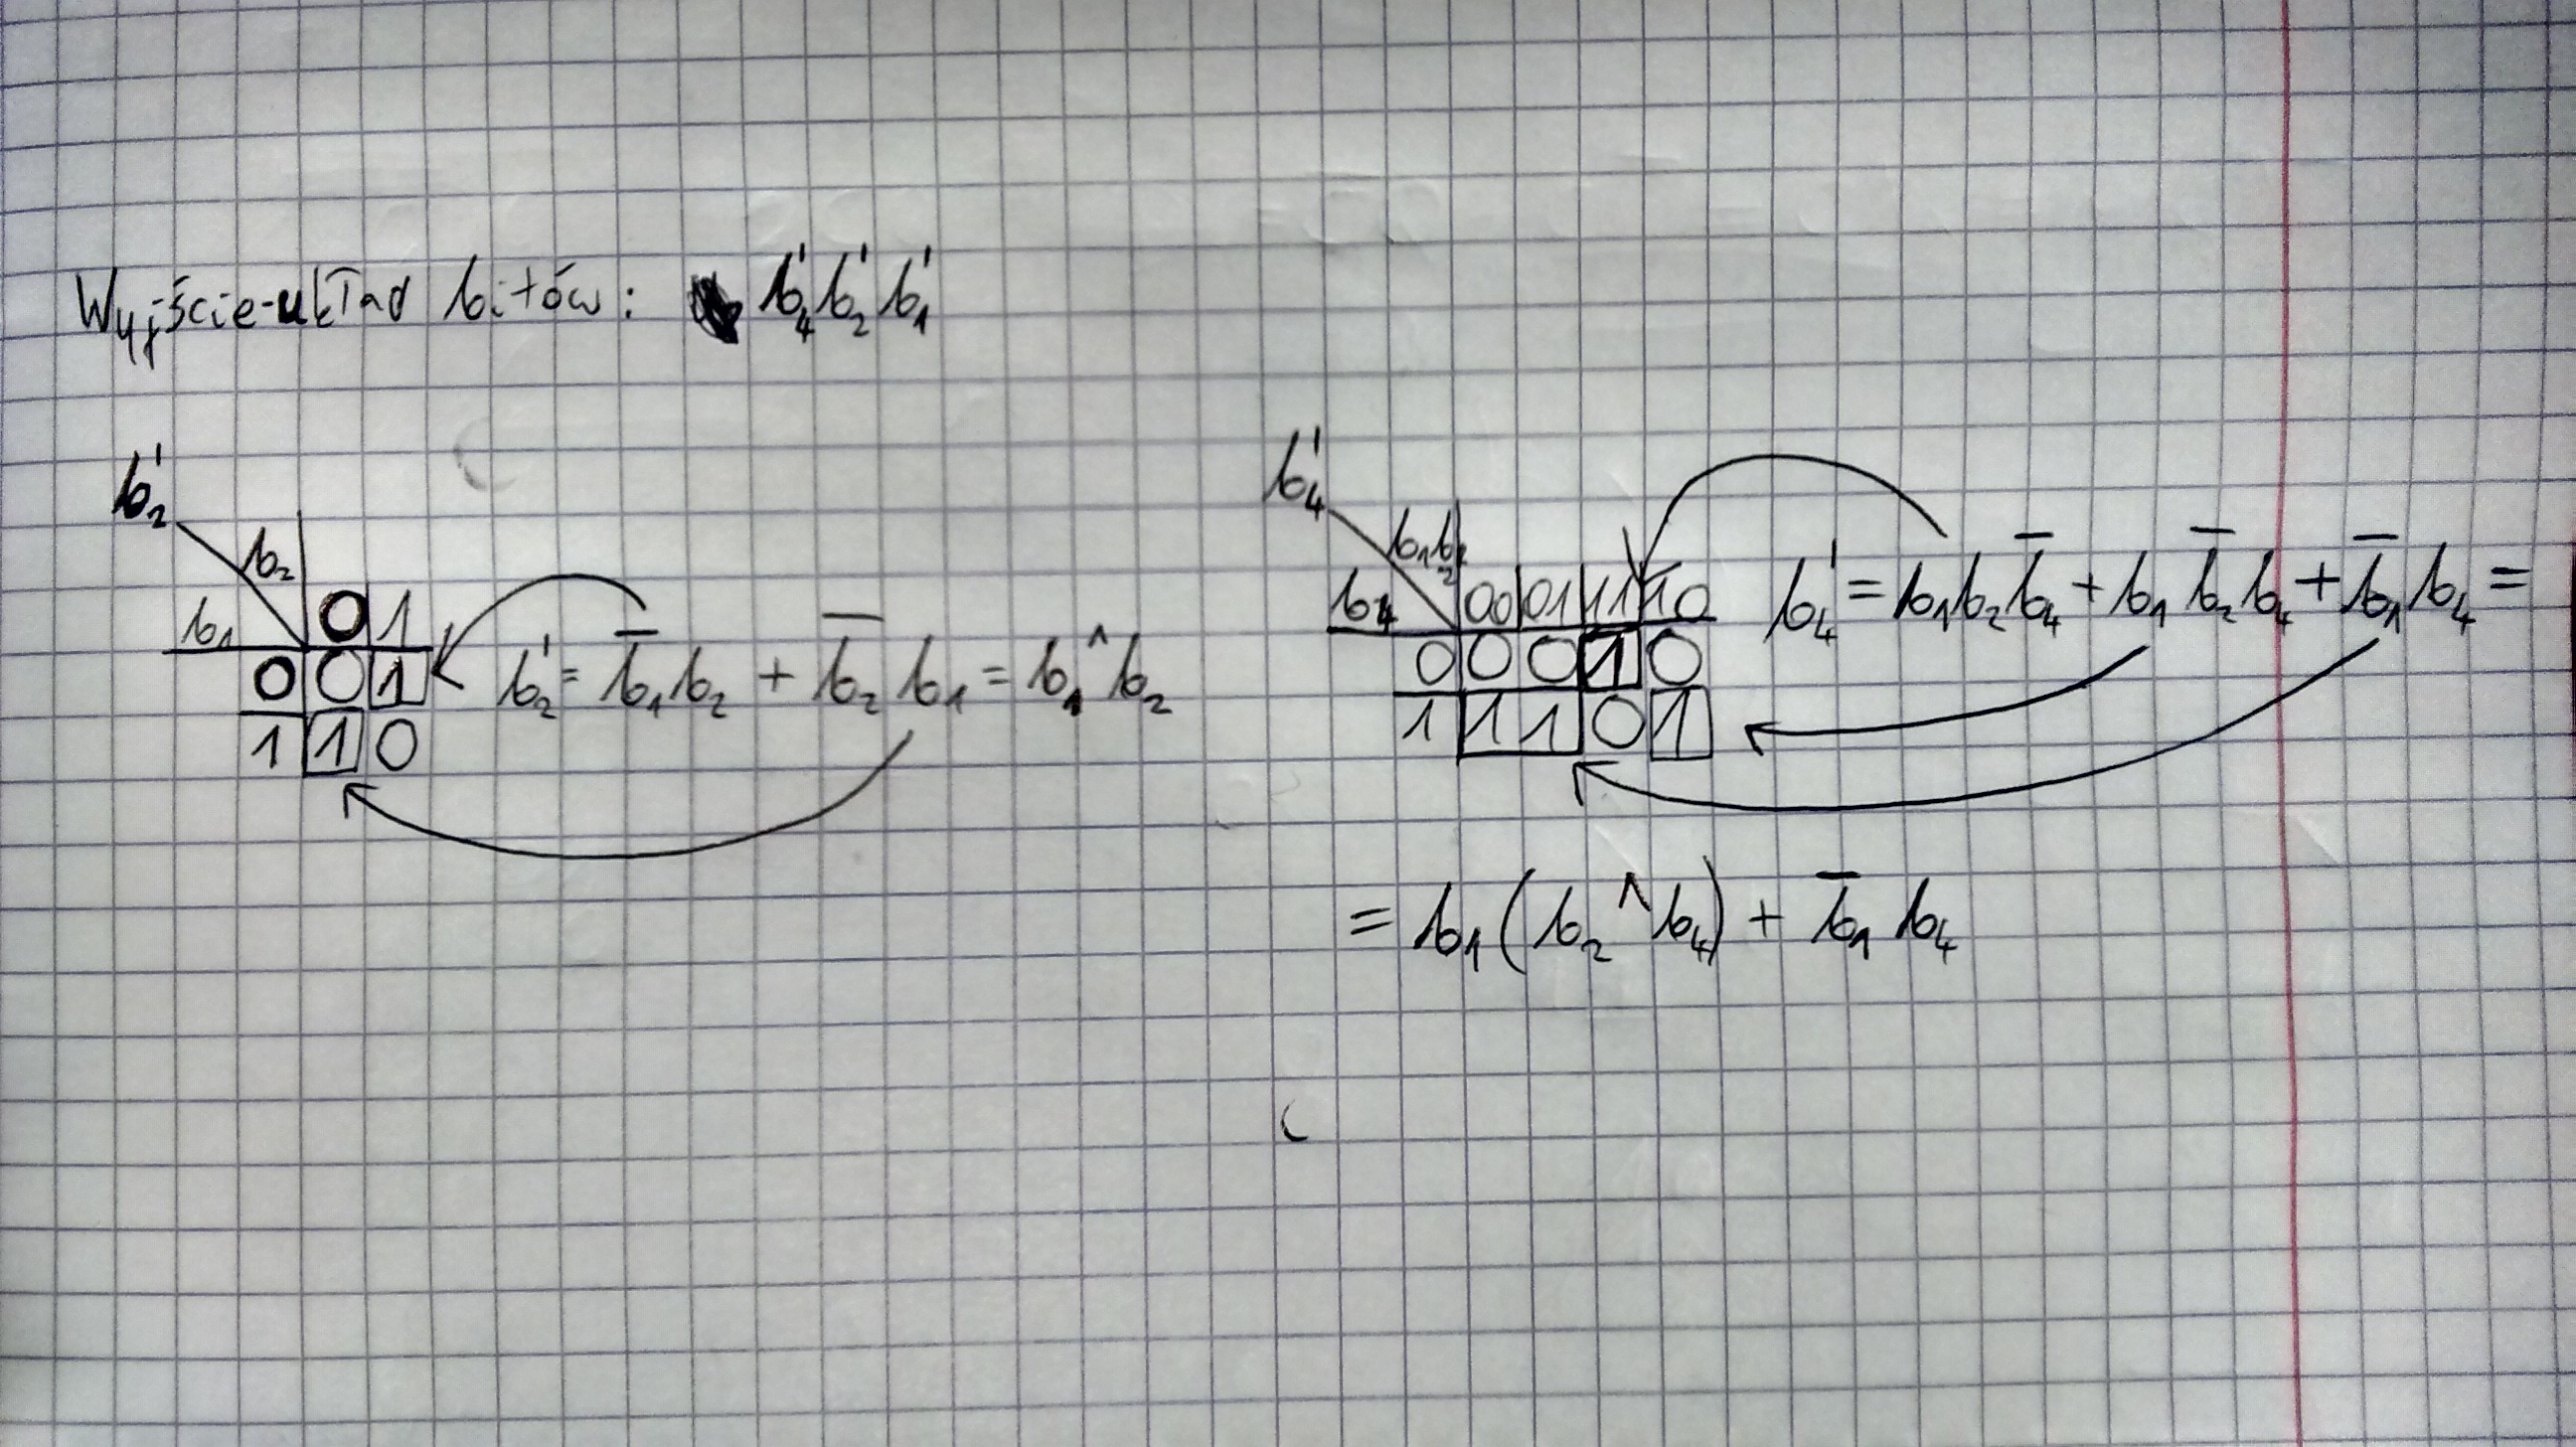 Wyjście-układ bitów: b₄' b₂' b₁'
b₂'
b₂
b₁ 0 1
0 0 1
1 1 0
b₂' = b̅₁b₂ + b̅₂b₁ = b₁^b₂
b₄'
b₁b₂
b₄ 00 01 11 10
0 0 0 1 0
1 1 1 0 1
b₄' = b₁b₂b̅₄ + b₁b̅₂b₄ + b̅₁b₄ =
= b₁(b₂^b₄) + b̅₁b₄